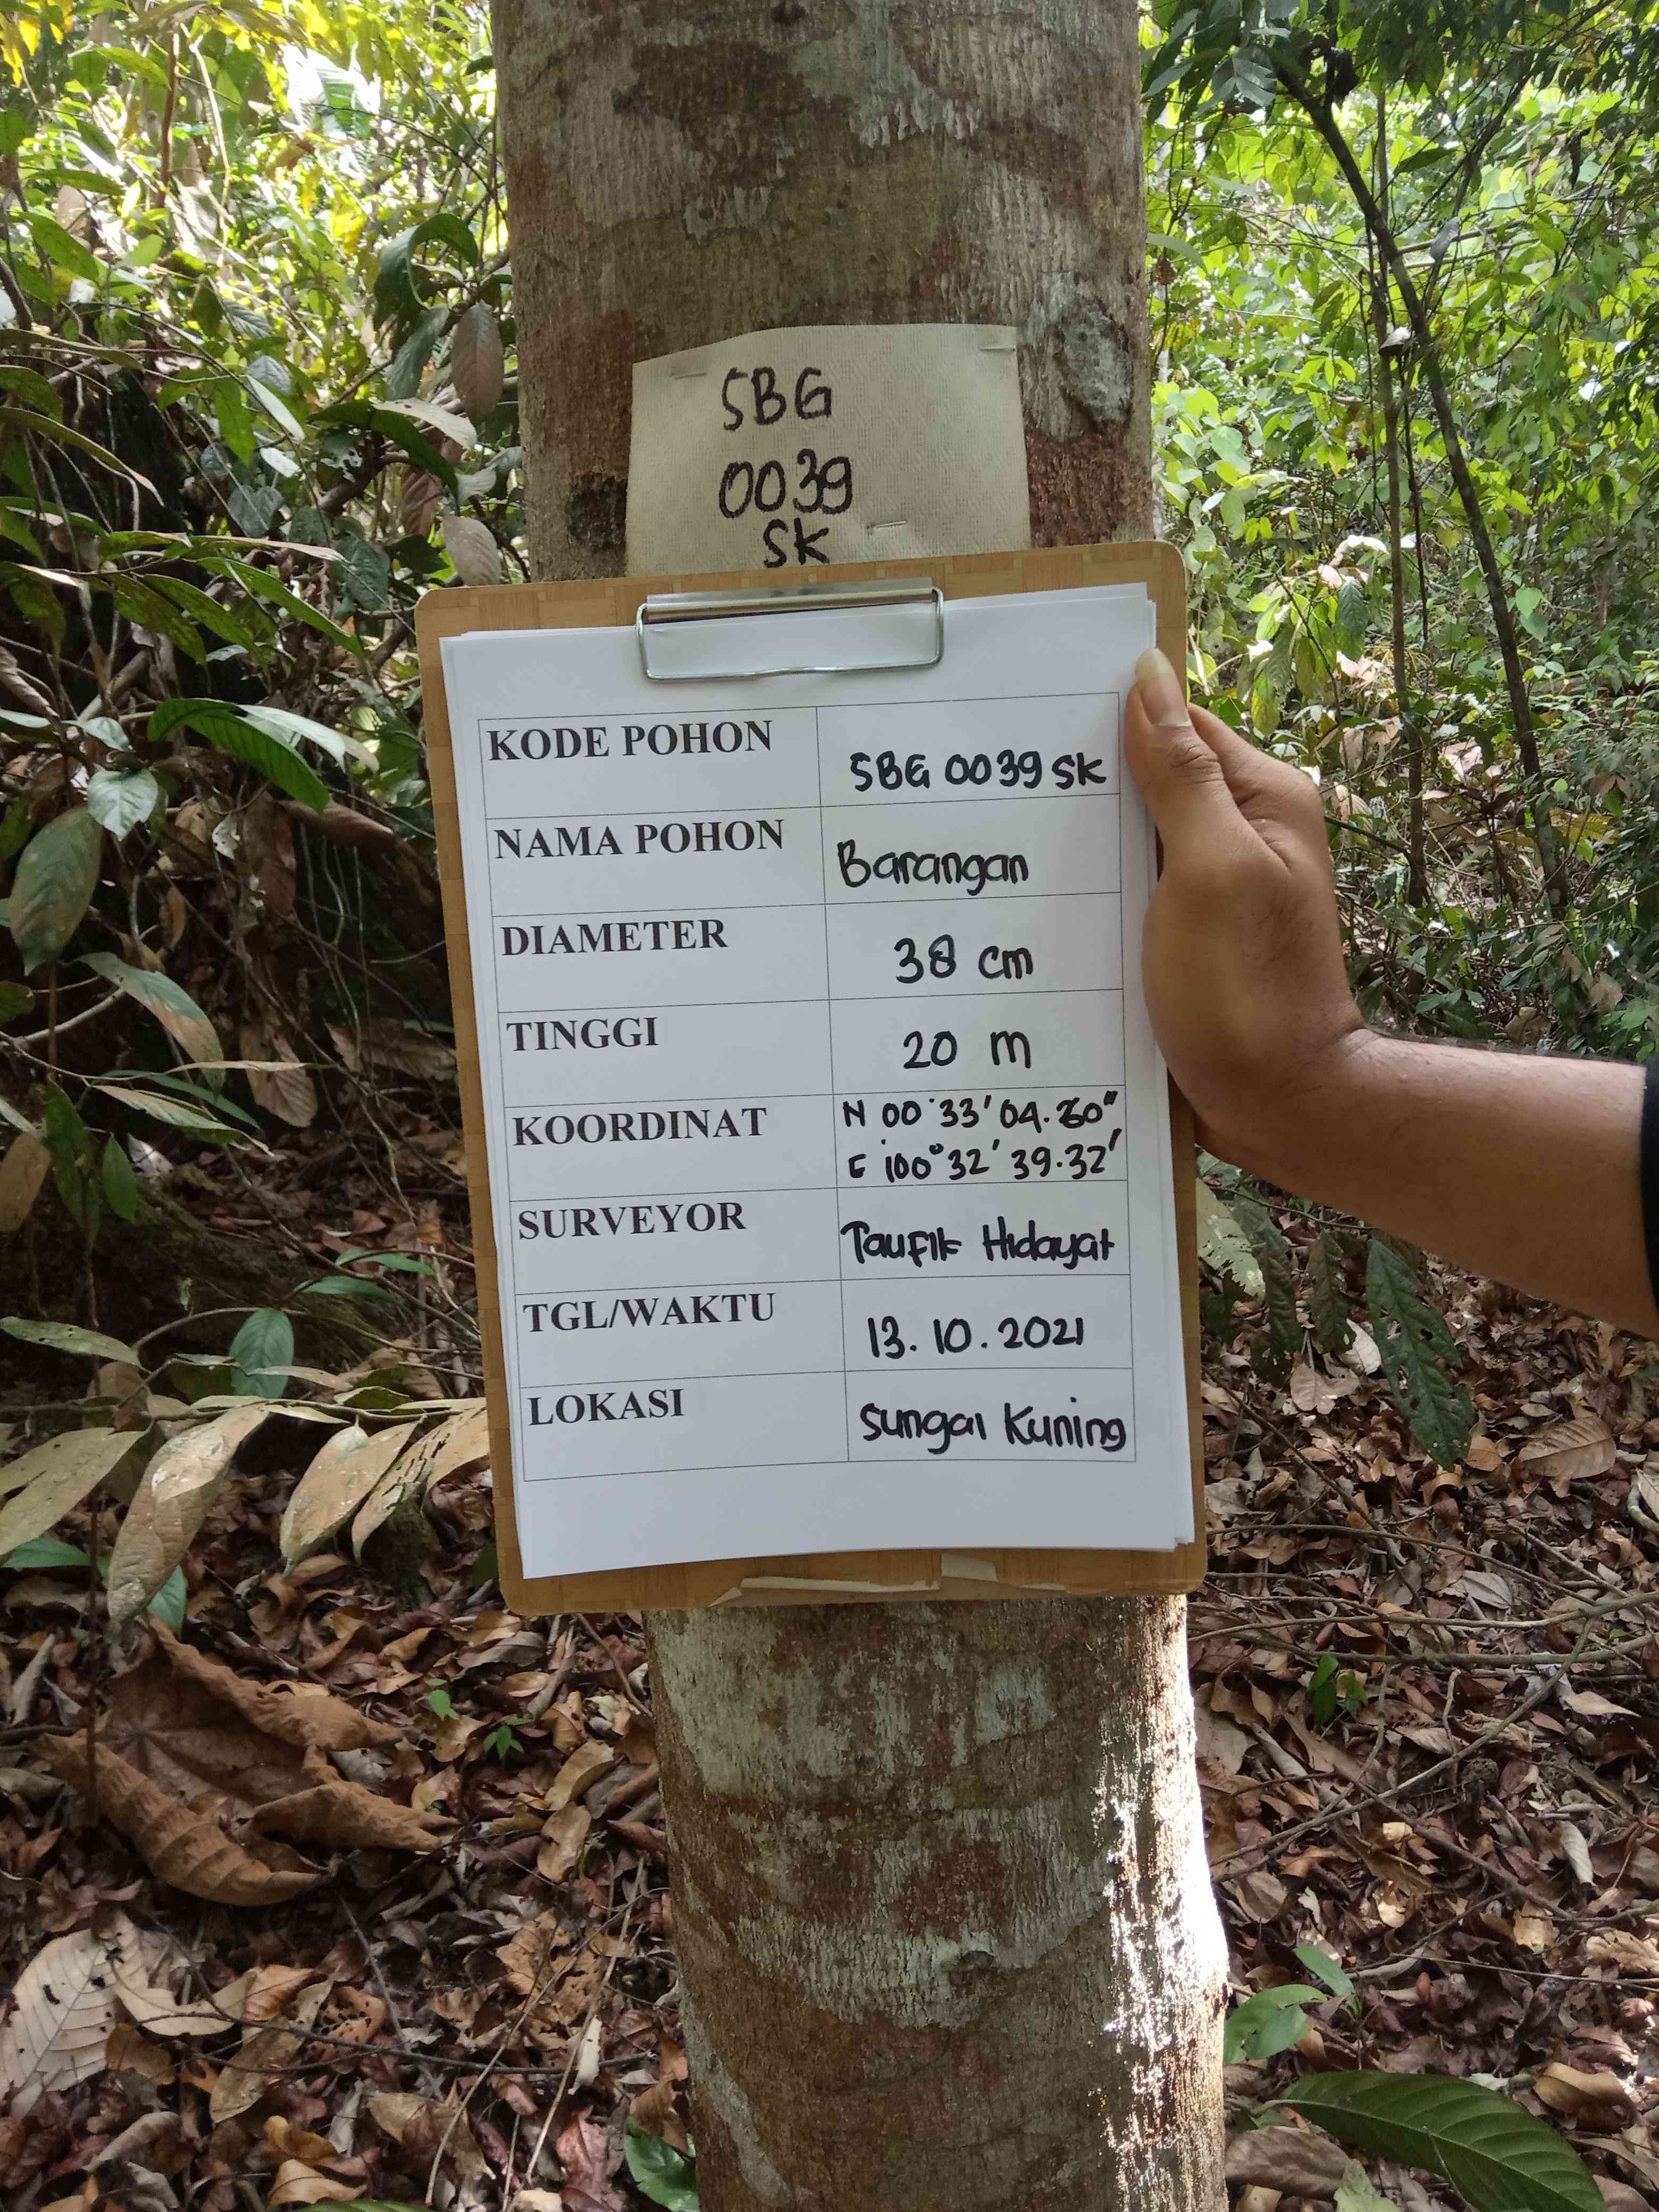 SBG
0039
SK
KODE POHON SBG 0039 SK
NAMA POHON Barangan
DIAMETER 38 cm
TINGGI 20 m
KOORDINAT N 00°33'04.
E 100°32'39.32'
SURVEYOR Taufik Hidayat
TGL/WAKTU 13.10.2021
LOKASI Sungai Kuning